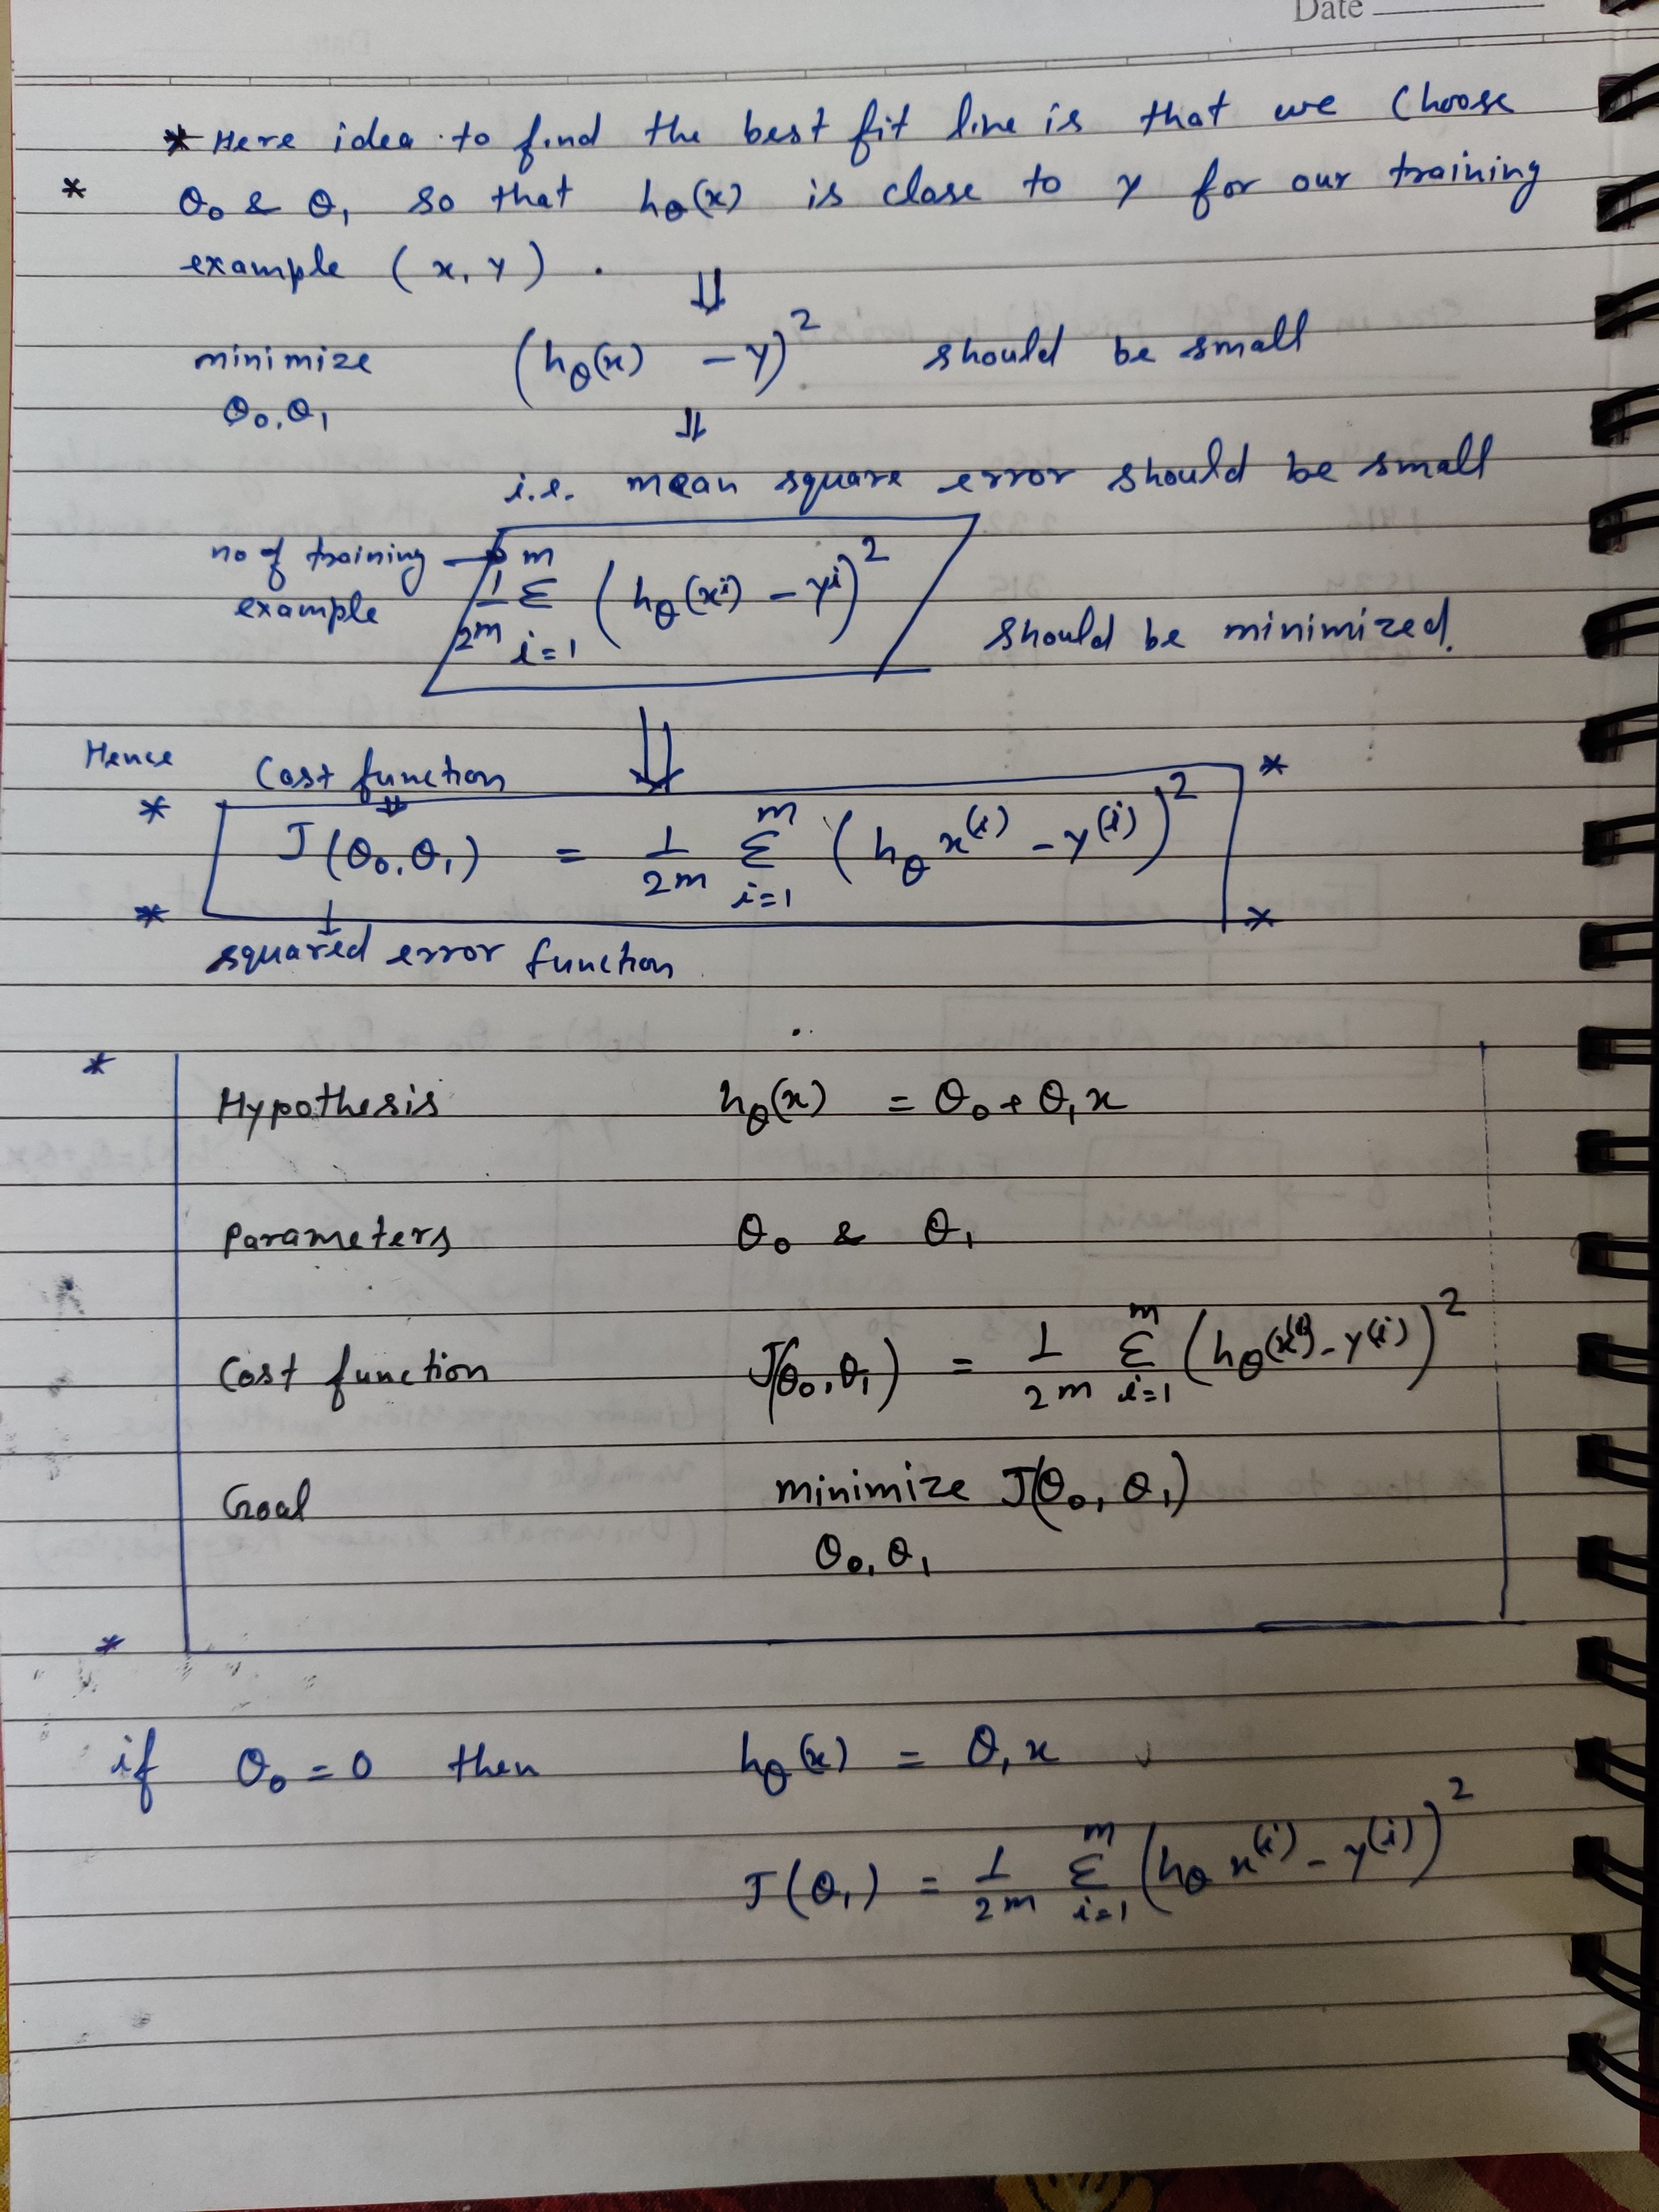 Date
* Here idea to find the best fit line is that we choose
* θ₀ & θ₁ so that hθ(x) is close to y for our training
example (x, y) .
⇓
minimize (hθ(x) - y)² should be small
θ₀, θ₁
⇓
i.e. mean square error should be small
no of training example → 1/2m Σ_{i=1}^{m} (hθ(xⁱ) - yⁱ)² should be minimized.
⇓
Hence Cost function
* J(θ₀, θ₁) = 1/2m Σ_{i=1}^{m} (hθ x⁽ⁱ⁾ - y⁽ⁱ⁾)² *
* squared error function *
* Hypothesis hθ(x) = θ₀ + θ₁x
Parameters θ₀ & θ₁
Cost function J(θ₀, θ₁) = 1/2m Σ_{i=1}^{m} (hθ(x⁽ⁱ⁾) - y⁽ⁱ⁾)²
Goal minimize J(θ₀, θ₁)
θ₀, θ₁
*
if θ₀ = 0 then hθ(x) = θ₁x
J(θ₁) = 1/2m Σ_{i=1}^{m} (hθ x⁽ⁱ⁾ - y⁽ⁱ⁾)²